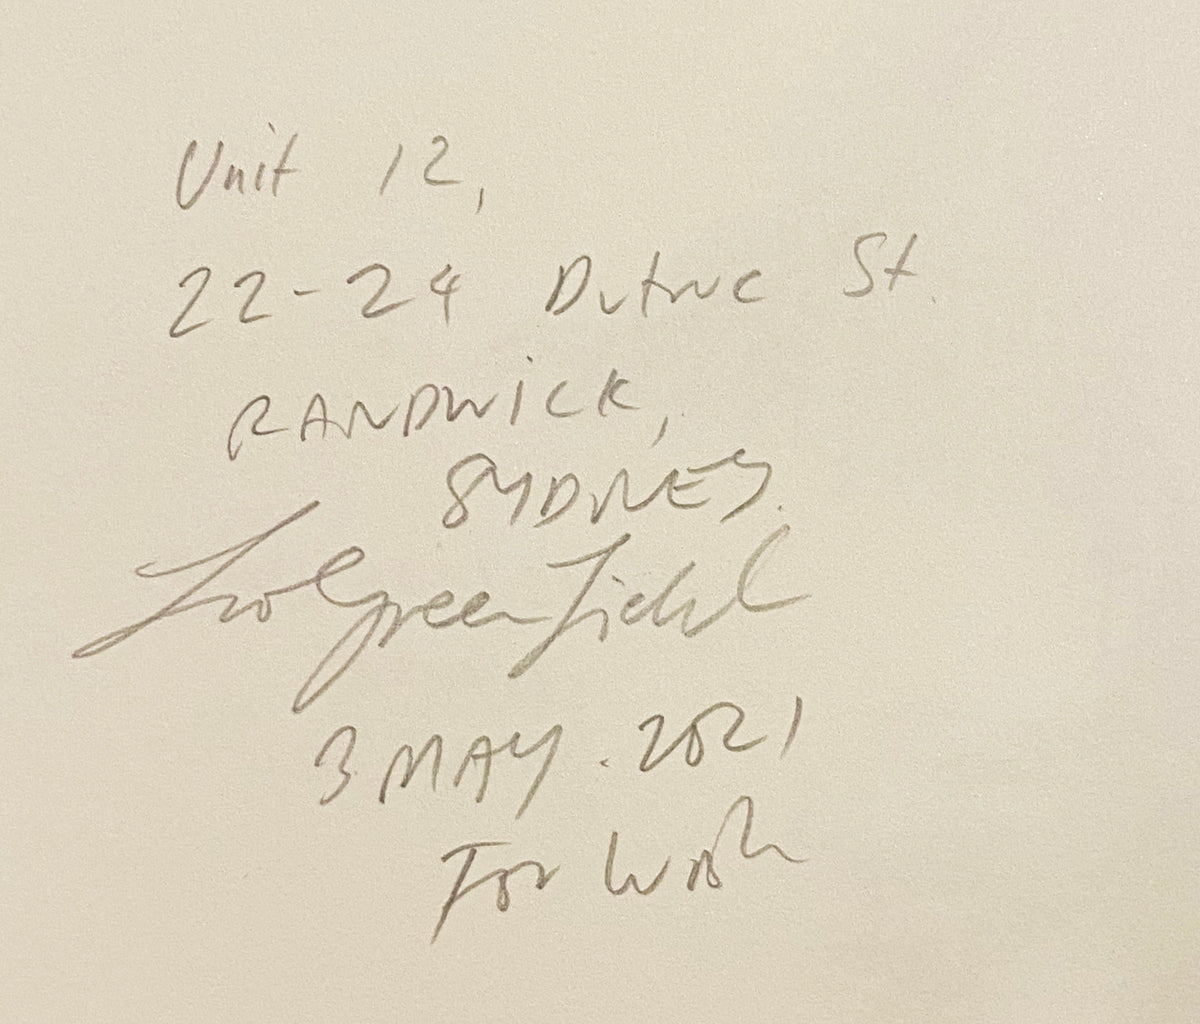 Unit 12,
22-24 Dutruc St.
RANDWICK,
SYDNEY.
Greenfield
3 MAY. 2021
For